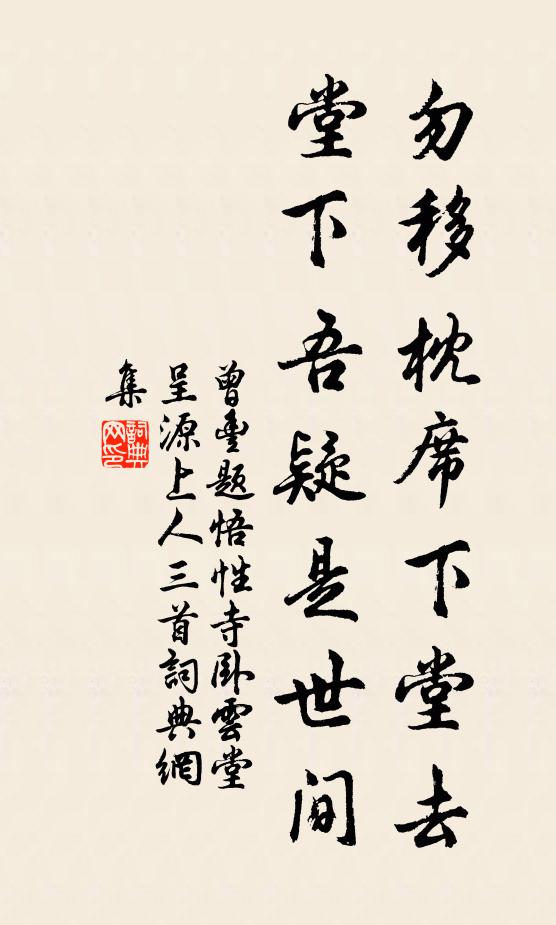 勿移枕席下堂去
堂下吾疑是世间
曾豊題悟性寺卧雲堂
呈源上人三首詞典網
集
詞典
网印